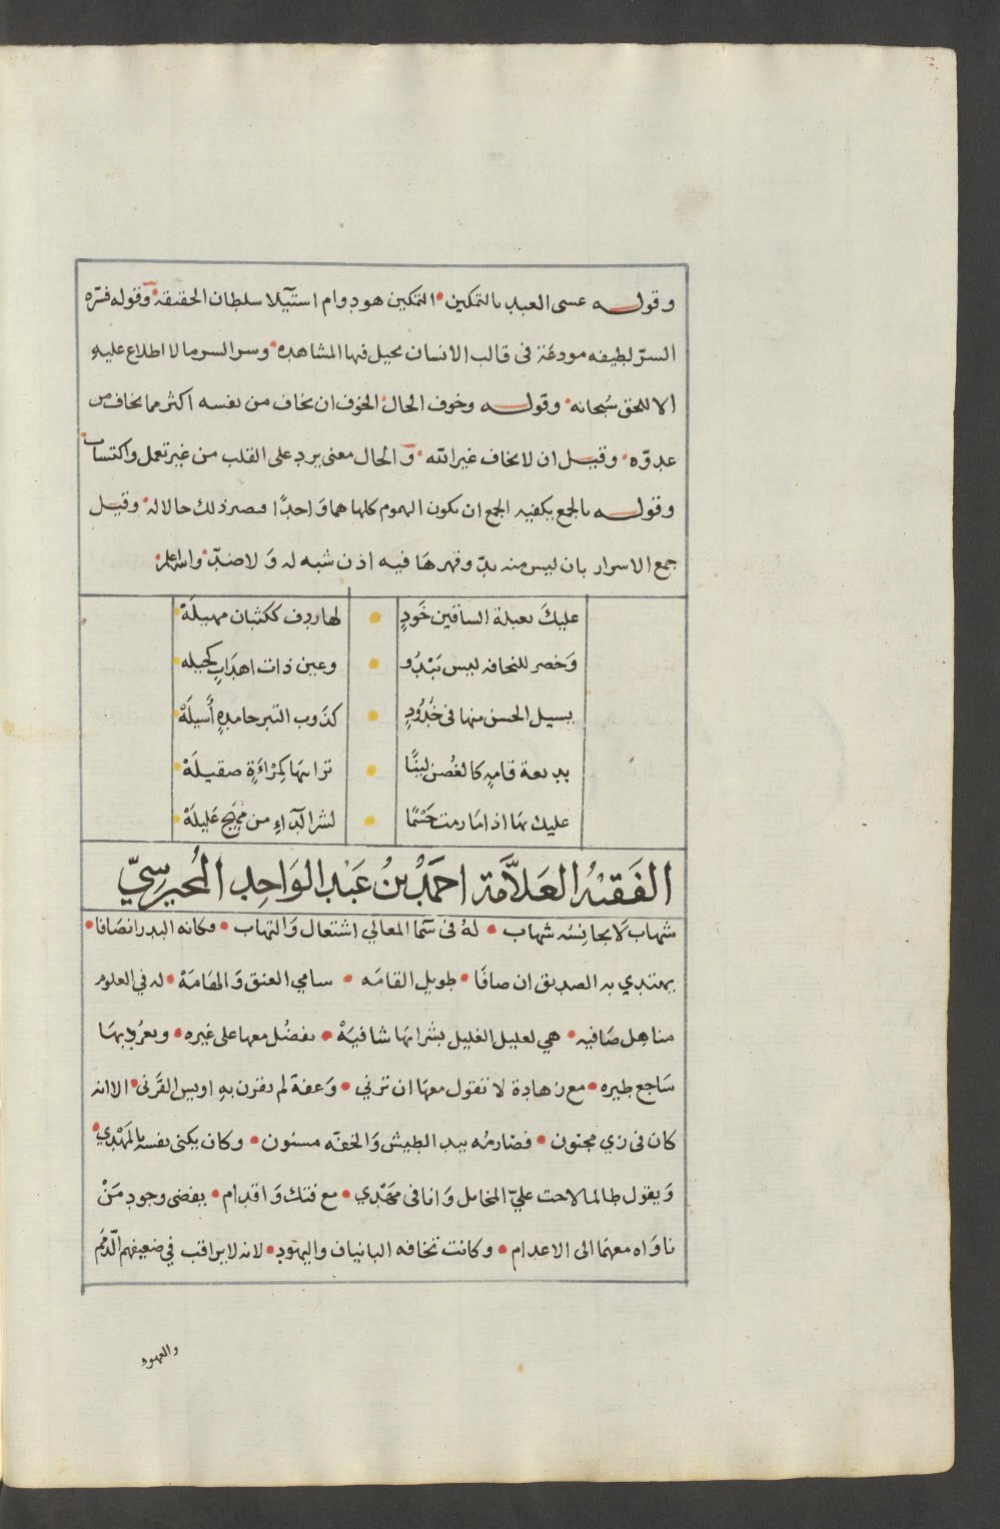 وقوله عسى العبد بالتمكين • التمكين هو دوام استيلا سلطان الحقيقة • وقوله فسّره
السرّ لطيفه مودعَة في قالب الانسان محيل فيها المشاهده • وسر السر ما لا اطلاع عليهِ
الا للحق سُبحانه • وقوله وخوف الحال • الخوف ان يخاف من نفسه اكثر مما يخاف من
عدوّه • وقيل ان لا يخاف غير الله • وَ الحال معنى يرد على القلب من غير تعمل واكتساب •
وقوله بالجمع يكفيه الجمع ان يكون الهموم كلها هما وَاحدًا فصير ذلك حالا له • وقيل
جمع الاسرار بان ليس منه بدّ وقهرهَا فيه اذ ن شبه له وَ لا ضدّ • والله اعلم •
عليكَ بعبلة الساقين خَودٍ • لها ردف ككثبان مهيلَهْ
وَخصر للنحافه ليس يَبْدُو • وعين ذات اهدَابٍ كحيله
يسيل الحسن منها في خُدُودٍ • كذوب التبر جامدهِ أَسيلَهْ
بديعة قامهِ كالغُصن لينًا • ترائبها كمْراءَةٍ صقيلَهْ
عليك بها اذا مَا رمت حَسْمًا • لشر الدّاءِ من مُهَجٍ عَليلَهْ
الفَقيْهُ العَلاَّمَة احمَدُ بْنُ عَبْد الوَاحِد المُحَيرسِيّ
شهاب لاَ يجانسُه شهاب • لهُ في سَمَا المعالي اشتعال وَالتهاب • وكانه البدر انصَافا •
يهتدي به الصديق ان صافَا • طويل القامَه • سامي العنق وَ الهَامَهْ • له في العلوم
مناهل صَافيه • هي لعليل الغليل بشرابهَا شافيَهْ • يفضُل معها على غيره • ويغرِّد بهَا
سَاجع طيره • مع زهَادة لا نقول معهَا ان ترني • وَعفة لم يقرن بهِ اويس القَرَني • الا انه
كان في زي مجنون • فصَارمُه بيد الطيش وَالخفّه مسنون • وكان يكنى نفسه بالمَهْدِي •
وَيقول طالما لاحت عليّ المخايل وَ انا في مَهْدي • مع فتك وَ اقدام • يفضى وجود مَنْ
ناوَاه معهَا الى الاعدام • وكانت تخافه البانيان واليهَود • لانه لا يراقب في ضعيفهم الذمَم
والعهود